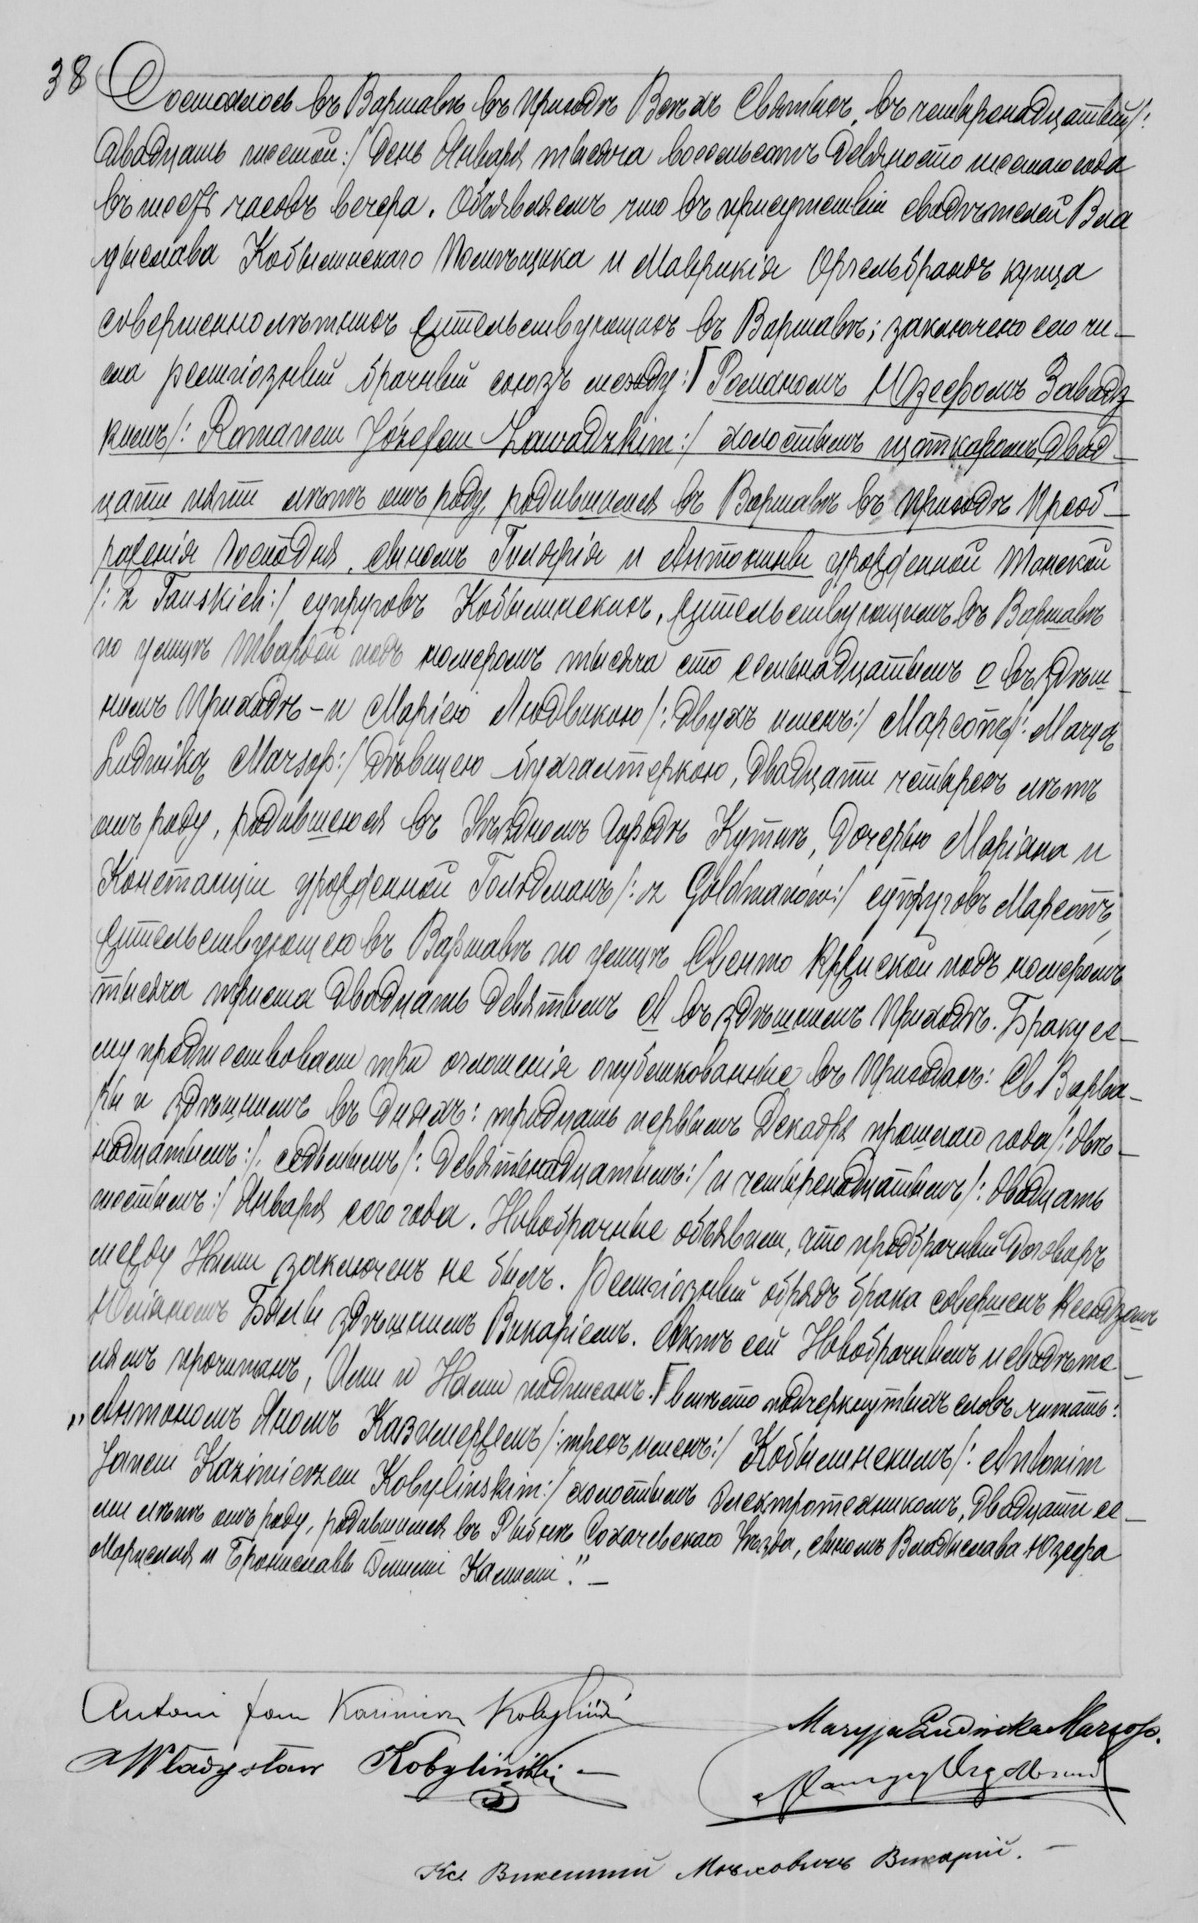 38 Состоялось въ Варшавѣ въ приходѣ Всѣхъ Святыхъ, въ четырнадцатый /:
двадцать шестой :/ день Января тысяча восемьсотъ девяносто шестаго года
въ шесть часовъ вечера. Объявляемъ что въ присутствіи свидѣтелей Вла
дыслава Кобылинскаго помѣщика и Маврикія Оргельбрандъ купца
совершеннолѣтнихъ жительствующихъ въ Варшавѣ; заключено сего чи–
сла религіозный брачный союзъ между: Романомъ Юзефомъ Завадз
кимъ /: Romanem Józefem Zawadzkim :/ холостымъ щеткаромъ, двад–
цати пяти лѣтъ отъ роду, родившимся въ Варшавѣ въ приходѣ Преоб–
раженія Господня, сыномъ Гилярія и Антонины урожденной Тонской
/: z Tauskich :/ супруговъ Кобылинскихъ, жительствующимъ въ Варшавѣ
по улицѣ Твардой подъ номеромъ тысяча сто семьнадцатымъ о въ здѣш–
немъ приходѣ – и Маріею Людвикою /: двухъ именъ :/ Марсопъ /: Maryą
Ludwiką Marsop :/ дѣвицею бухгалтеркою, двадцати четырехъ лѣтъ
отъ роду, родившеюся въ Уѣздномъ городѣ Кутнѣ, дочерью Маріана и
Констанціи урожденной Гольдманъ /: z Goldmanów :/ супруговъ Марсопъ,
жительствующею въ Варшавѣ по улицѣ Свенто Кржиской подъ номеромъ
тысяча триста двадцать девятымъ А въ здѣшнемъ приходѣ. Браку се–
му предшествовали три оглашенія опубликованные въ приходахъ: Св. Варва–
ры и здѣшнемъ въ дняхъ: тридцать первымъ Декабря прошлаго года /: двѣ–
надцатымъ :/, седьмымъ /: девятьнадцатымъ :/ и четырнадцатымъ /: двадцать
шестымъ :/ Января сего года. Новобрачные объявили, что предбрачный договоръ
между Ними заключенъ не былъ. Религіозный обрядъ брака совершенъ Ксендзомъ
Юліаномъ Бялы здѣшнимъ Викаріемъ. Актъ сей Новобрачнымъ и свидѣте–
лямъ прочитанъ, Ими и Нами подписанъ. вмѣсто подчеркнутыхъ словъ читать:
„Антономъ Яномъ Казимержемъ /: трехъ именъ :/ Кобылинскимъ /: Antonim
Janem Kazimierzem Kobylinskim :/ холостымъ электротехникомъ, двадцати се–
ми лѣтъ отъ роду, родившимся въ Рыбнѣ Сохачевскаго Уѣзда, сыномъ Владыслава Юзефа
Марцелля и Брониславы Эмиліи Камиліи". –
Antoni Jan Kazimierz Kobyliński
Maryja Ludwika Marsop.
Władysław Kobyliński –
Maurycy Orgelbrand
Кс. Викентій Мѣховичъ Викарій. –